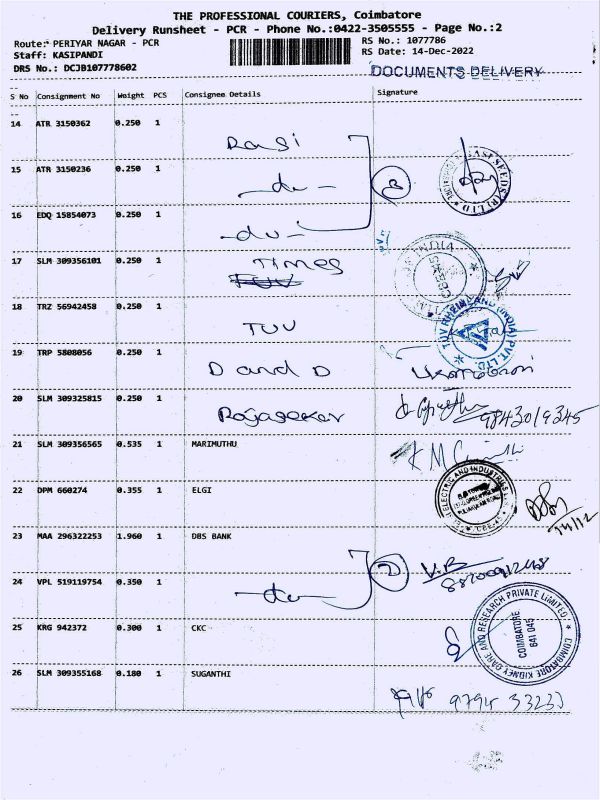 THE PROFESSIONAL COURIERS, Coimbatore
Delivery Runsheet - PCR - Phone No.:0422-3505555 - Page No.:2
Route: PERIYAR NAGAR - PCR RS No.: 1077786
Staff: KASIPANDI RS Date: 14-Dec-2022
DRS No.: DCJB107778602 DOCUMENTS DELIVERY
S No Consignment No Weight PCS Consignee Details Signature
14 ATR 3150362 0.250 1 Rasi
15 ATR 3150236 0.250 1 -do- 3
16 EDQ 15854073 0.250 1 -do-
17 SLM 309356101 0.250 1 Times
18 TRZ 56942458 0.250 1 TUV
TUV RHEINLAND (INDIA) PVT. LTD.
19 TRP 5808056 0.250 1 D and D
20 SLM 309325815 0.250 1 Rajasekar 9843019345
21 SLM 309356565 0.535 1 MARIMUTHU
22 DPM 660274 0.355 1 ELGI
ELECTRIC AND INDUSTRIES
14/12
23 MAA 296322253 1.960 1 DBS BANK
24 VPL 519119754 0.350 1 -do- 2 V.B
25 KRG 942372 0.300 1 CKC
COIMBATORE KIDNEY CARE AND RESEARCH PRIVATE LIMITED
COIMBATORE
641 045
26 SLM 309355168 0.180 1 SUGANTHI